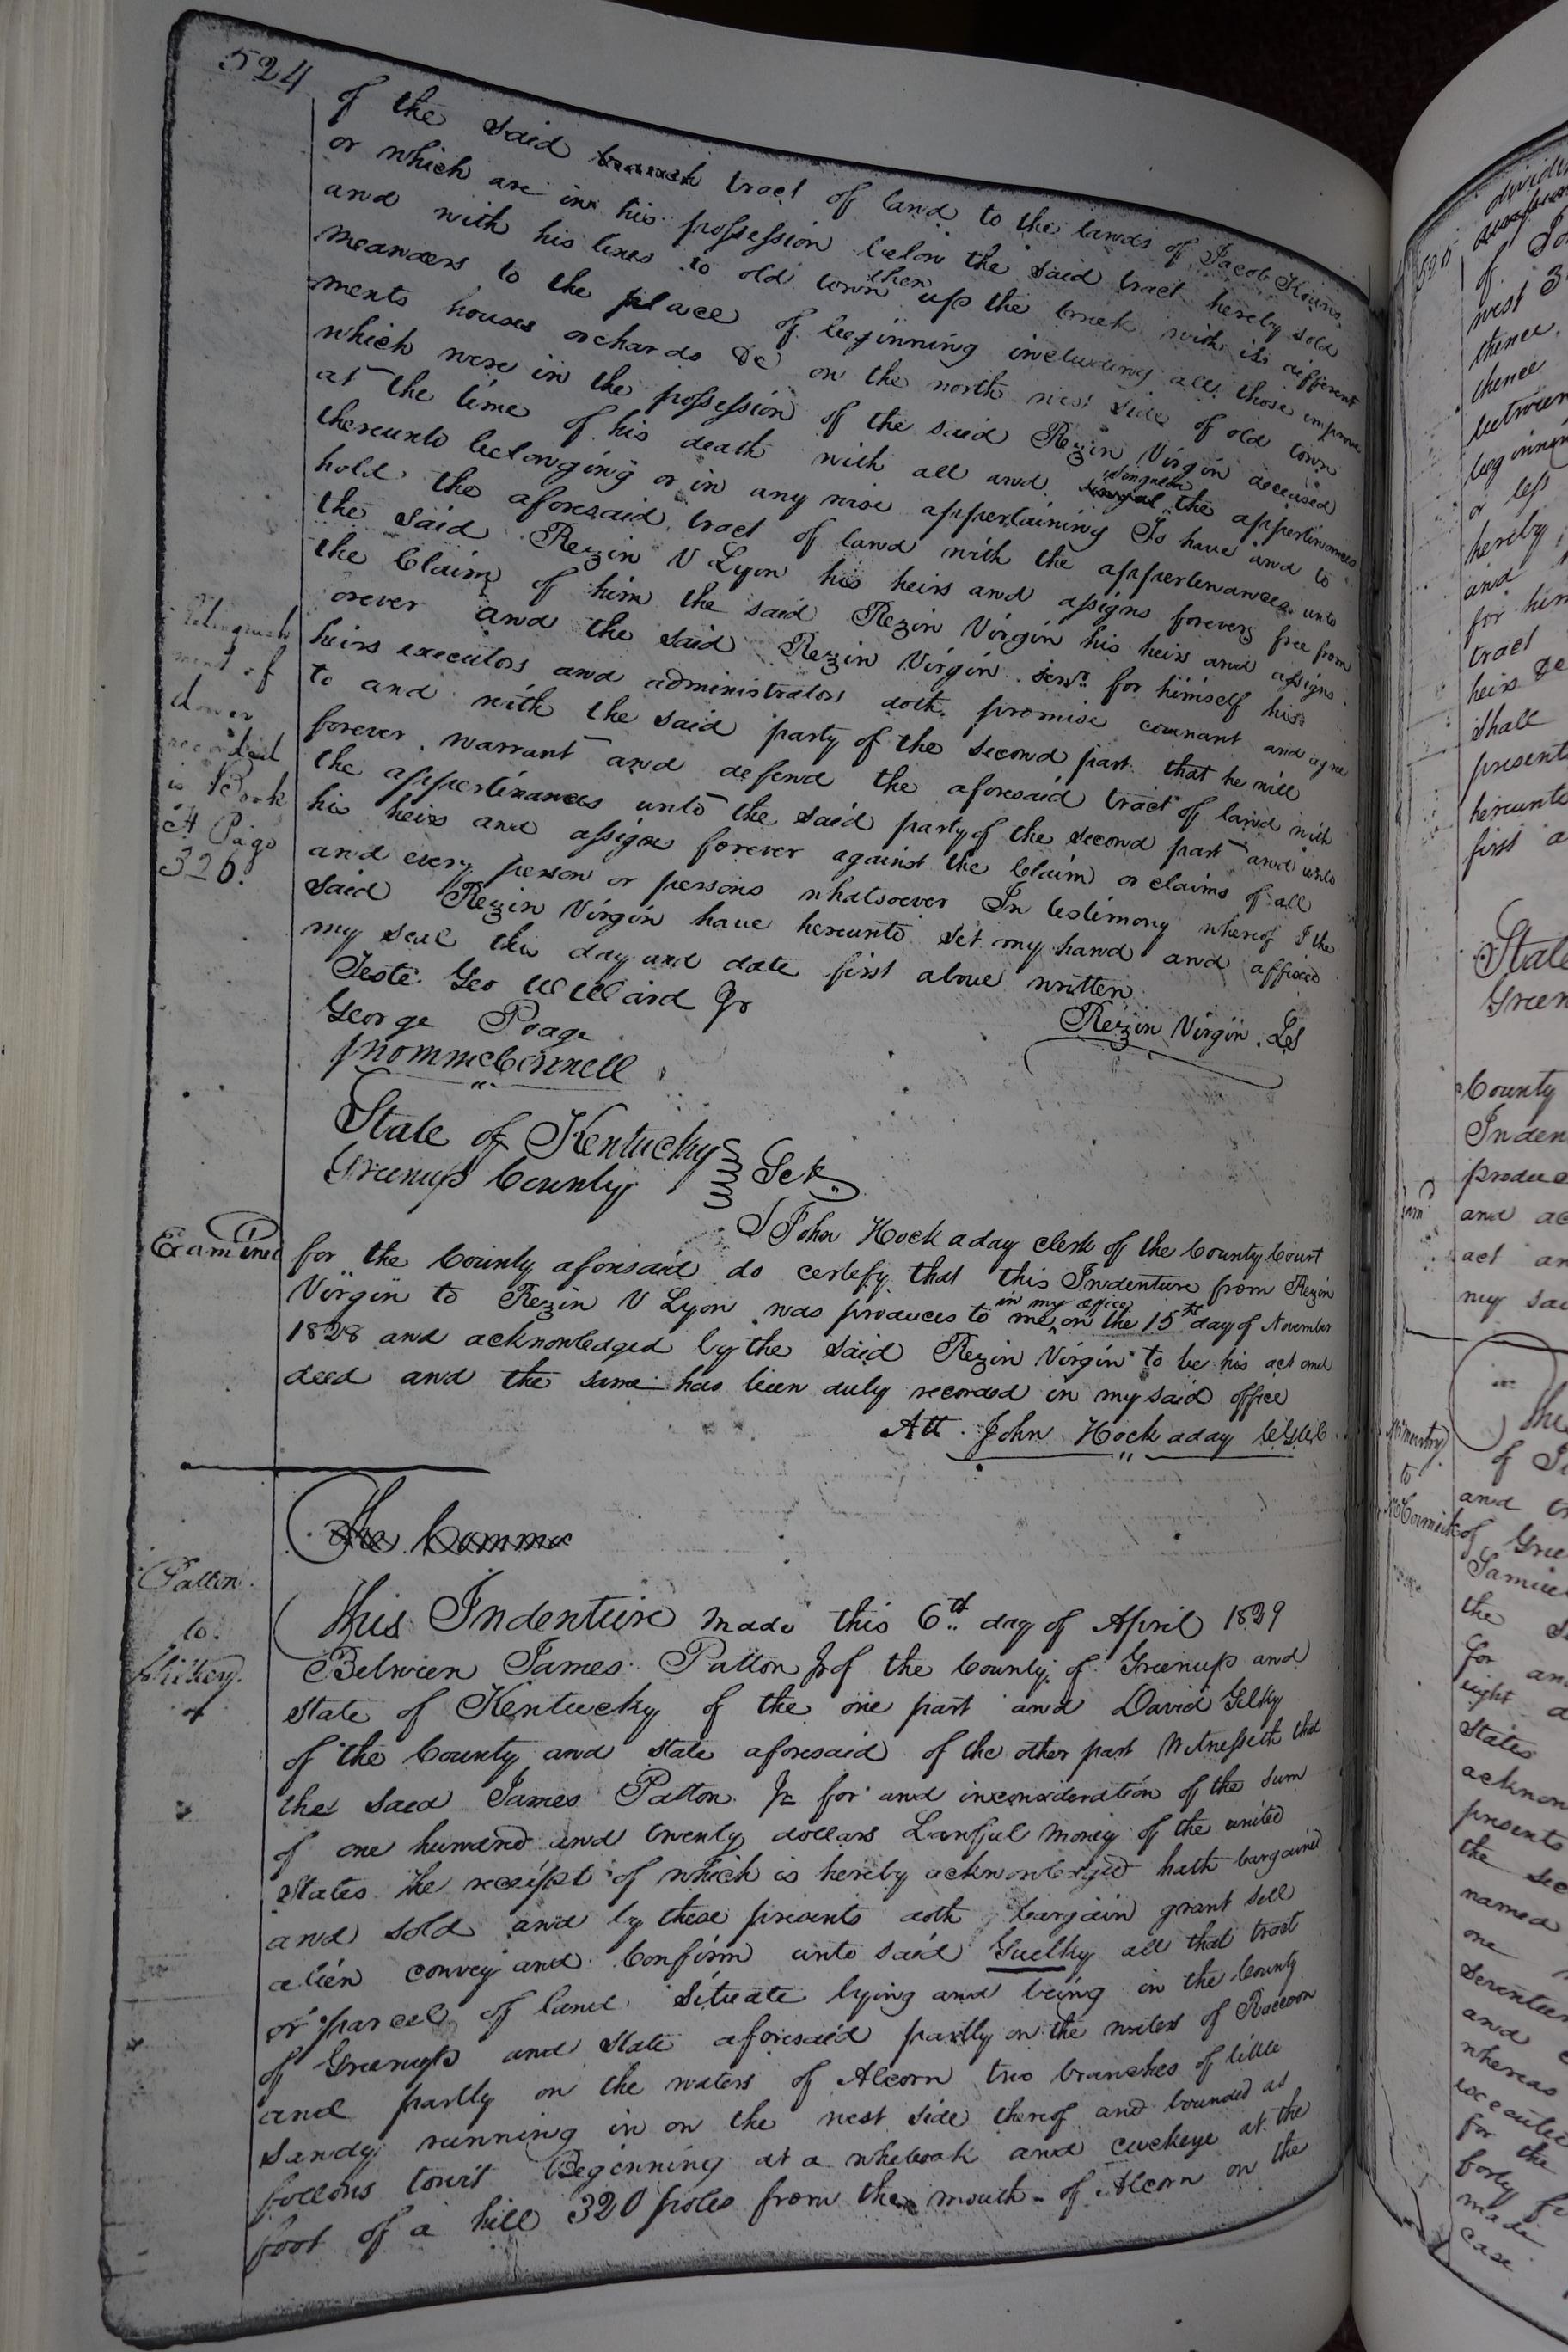 524
of the said branch tract of land to the lands of Jacob Kouns
or which are in his possession below the said tract hereby sold
and with his lines to old town then up the creek with its different
meanders to the place of beginning including all those improve
ments houses orchards &c on the north west side of old town
which were in the possession of the said Rezin Virgin deceased
at the time of his death with all and singular the appertinances
thereunto belonging or in any wise appertaining To have and to
hold the aforesaid tract of land with the appertenances unto
the said Rezin V Lyon his heirs and assigns forever free from
the Claim of him the said Rezin Virgin his heirs and assigns
orever and the said Rezin Virgin senr. for himself his
heirs executors and administrators doth promise covenant and agree
to and with the said party of the second part that he will
forever warrant and defend the aforesaid tract of land with
the appertinances unto the said party of the second part and unto
his heirs and assigns forever against the Claim or claims of all
and every person or persons whatsoever In testimony whereof I the
said Rezin Virgin have hereunto set my hand and affixed
my seal the day and date first above written
Teste Geo W Ward Jr
George Poage
Rezin Virgin LS
Thom McConnell
relinquish
ment of
dower
recorded
in Book
A Page
326.
State of Kentucky
Greenup County
Sct
Examined
I John Hockaday clerk of the County Court
for the County aforesaid do certefy that this Indenture from Rezin
Virgin to Rezin V Lyon was produced to me in my office on the 15th day of November
1828 and acknowledged by the said Rezin Virgin to be his act and
deed and the same has been duly recorded in my said office
Att. John Hockaday CGCC
The Comma
Patton
to
This Indenture made this 6th day of April 1829
Between James Patton Jr of the County of Greenup and
State of Kentucky of the one part and David Gilky
of the County and state aforesaid of the other part Witnesseth that
the said James Patton Jr for and inconsideration of the sum
of one hundred and twenty dollars Lawful money of the united
States the receipt of which is hereby acknowledged hath bargained
and sold and by these presents doth bargain grant sell
alien convey and Confirm unto said Guelky all that tract
or parcel of land Situate lying and being in the County
of Greenup and state aforesaid partly on the waters of Raccoon
and partly on the waters of Alcorn two branches of little
Sandy running in on the west side thereof and bounded as
follows towit Beginning at a whiteoak and cuckeye at the
foot of a hill 320 poles from the mouth of Alcorn on the
State
Green
County
Inden
produce
and ac
act an
my sai
to
McCormick
and
of Gree
Samuel
the
for an
eight
States
acknow
presents
the sec
named
one
Seventeen
and
whereas
executed
for the
forty
made
case